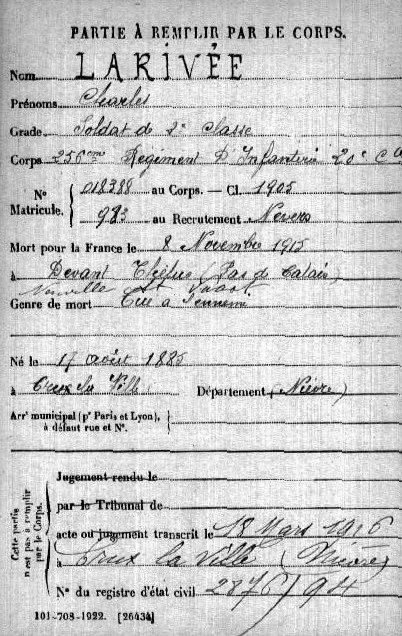 PARTIE À REMPLIR PAR LE CORPS.
Nom LARIVÉE
Prénoms Charles
Grade Soldat de 2e Classe
Corps 256eme Régiment d'Infanterie 20e Cie
N° Matricule. { 018388 au Corps. — Cl. 1905
983 au Recrutement Nevers
Mort pour la France le 8 Novembre 1915
à Devant (Pas de Calais)
Neuville St Vaast
Genre de mort Tué à l'ennemi
Né le 17 août 1885
à Crux la Ville Département (Nièvre)
Arrt municipal (pr Paris et Lyon), à défaut rue et N°. }
Cette partie n'est pas à remplir par le Corps.
Jugement rendu le
par le Tribunal de
acte ou jugement transcrit le 18 Mars 1916
à Crux la Ville (Nièvre)
N° du registre d'état civil 2876/94
101-708-1922. [26434]